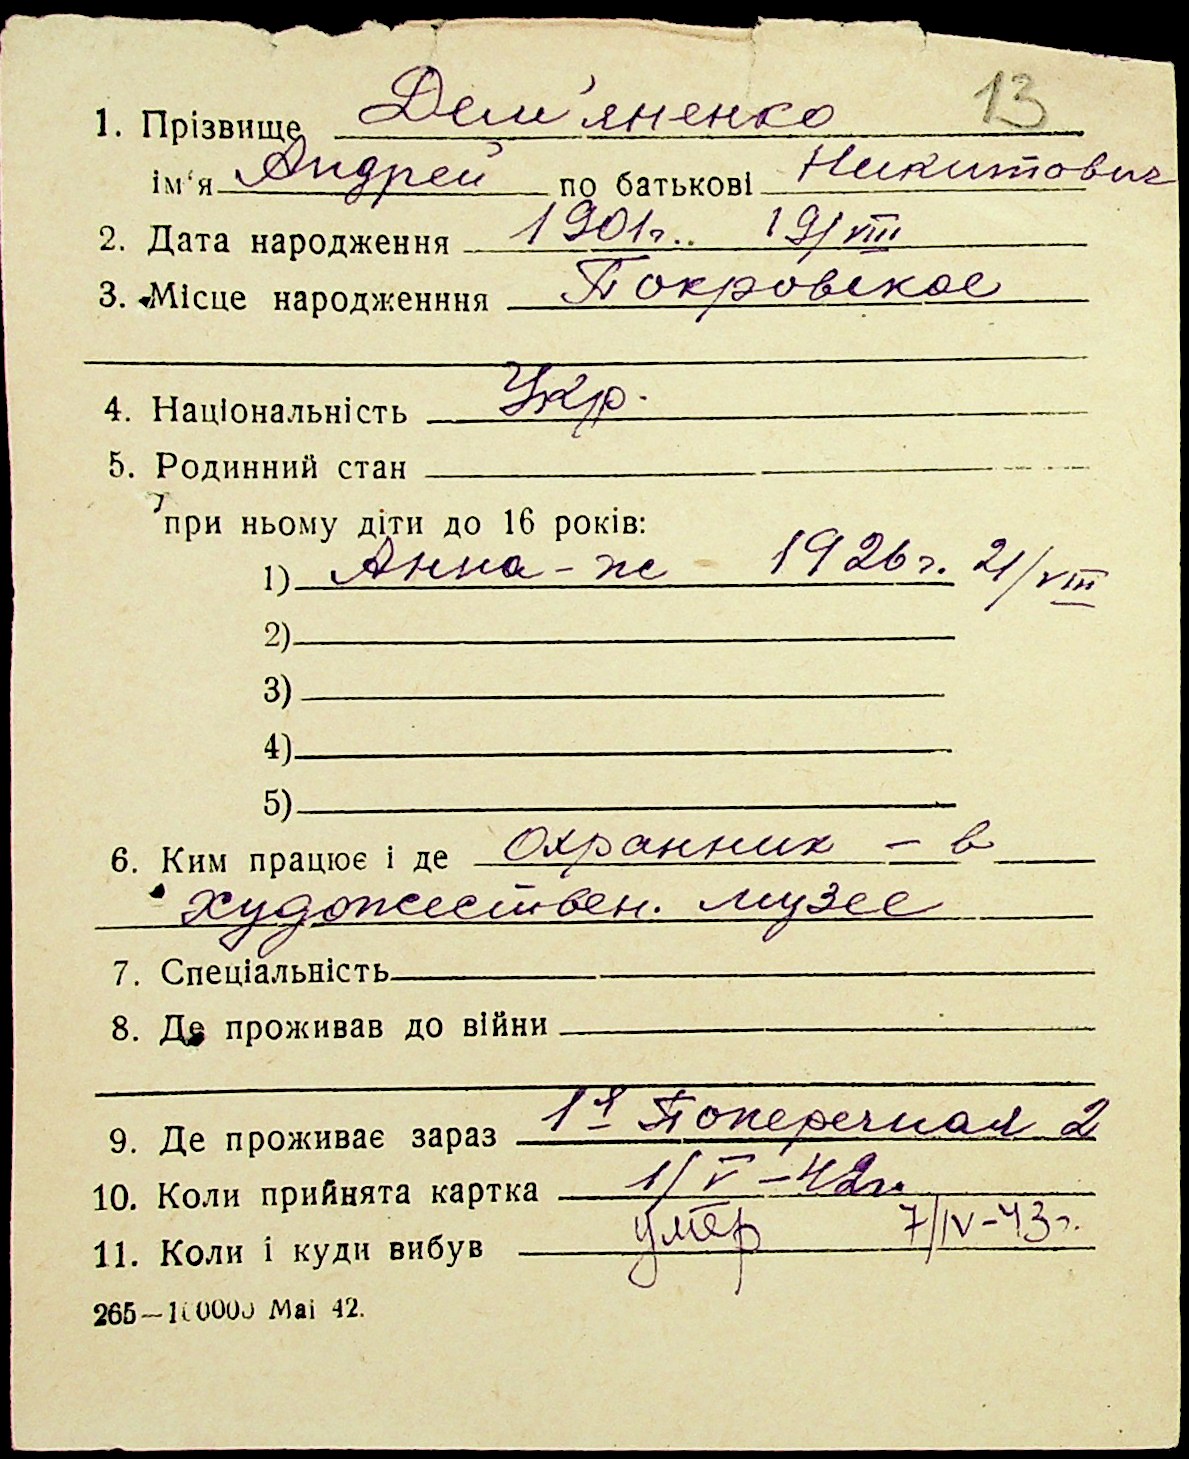 13
1. Прізвище Дем'яненко
ім'я Андрей по батькові Никитович
2. Дата народження 1901г. 19/VIII
3. Місце народженння Покровское
4. Національність Укр.
5. Родинний стан
при ньому діти до 16 років:
1) Анна - ж 1926г. 21/VIII
2)
3)
4)
5)
6. Ким працює і де охранник - в
художествен. музее
7. Спеціальність
8. Де проживав до війни
9. Де проживає зараз 1я Поперечная 2
10. Коли прийнята картка 1/V-42г.
11. Коли і куди вибув умер 7/IV-43г.
265—100000 Маі 42.